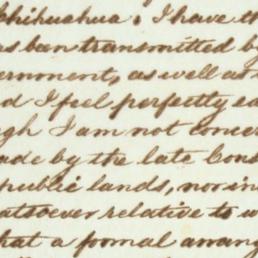 Chihuahua. I have th
as been transmitted b
ernment, as well as
d I feel perfectly ea
gh I am not concer
ade by the late Cons
public lands, nor in
atsoever relative to w
hat a formal arrang